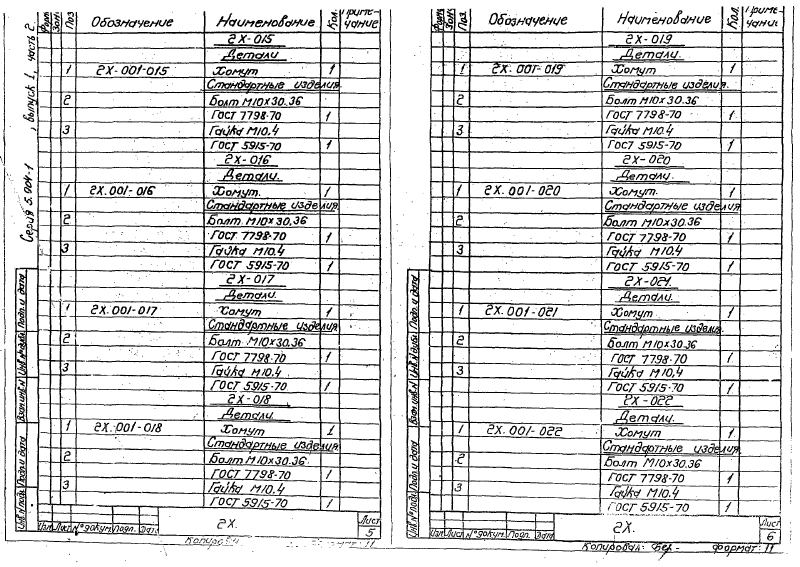 Серия 5.004-1, выпуск 1, часть 2.
Зон. Поз. Обозначение Наименование Кол. Приме-чание
2Х-015
Детали
1 2Х-001-015 Хомут 1
Стандартные изделия
2 Болт М10х30.36
ГОСТ 7798-70 1
3 Гайка М10.4
ГОСТ 5915-70 1
2Х-016
Детали.
1 2Х.001-016 Хомут. 1
Стандартные изделия
2 Болт М10х30.36
ГОСТ 7798-70 1
3 Гайка М10.4
ГОСТ 5915-70 1
2Х-017
Детали.
1 2Х.001-017 Хомут 1
Стандартные изделия
2 Болт М10х30.36
ГОСТ 7798-70 1
3 Гайка М10.4
ГОСТ 5915-70 1
2Х-018
Детали.
1 2Х.001-018 Хомут 1
Стандартные изделия
2 Болт М10х30.36
ГОСТ 7798-70 1
3 Гайка М10.4
ГОСТ 5915-70 1
Инв.№подл. Подп. и дата Взам.инв.№ Инв.№дубл. Подп. и дата
Изм. Лист №докум. Подп. Дата
2Х.
Лист
5
Копировал
Зон. Поз. Обозначение Наименование Кол. Приме-чание
2Х-019
Детали
1 2Х.001-019 Хомут 1
Стандартные изделия.
2 Болт М10х30.36
ГОСТ 7798-70 1
3 Гайка М10.4
ГОСТ 5915-70 1
2Х-020
Детали.
1 2Х.001-020 Хомут. 1
Стандартные изделия
2 Болт М10х30.36
ГОСТ 7798-70 1
3 Гайка М10.4
ГОСТ 5915-70 1
2Х-021.
Детали.
1 2Х.001-021 Хомут 1
Стандартные изделия.
2 Болт М10х30.36
ГОСТ 7798-70 1
3 Гайка М10.4
ГОСТ 5915-70 1
2Х-022
Детали.
1 2Х.001-022 Хомут 1
Стандартные изделия
2 Болт М10х30.36
ГОСТ 7798-70 1
3 Гайка М10.4
ГОСТ 5915-70 1
Инв.№подл. Подп. и дата Взам.инв.№ Инв.№дубл. Подп. и дата
Изм. Лист №докум. Подп. Дата
2Х.
Лист
6
Копировал: Формат: 11